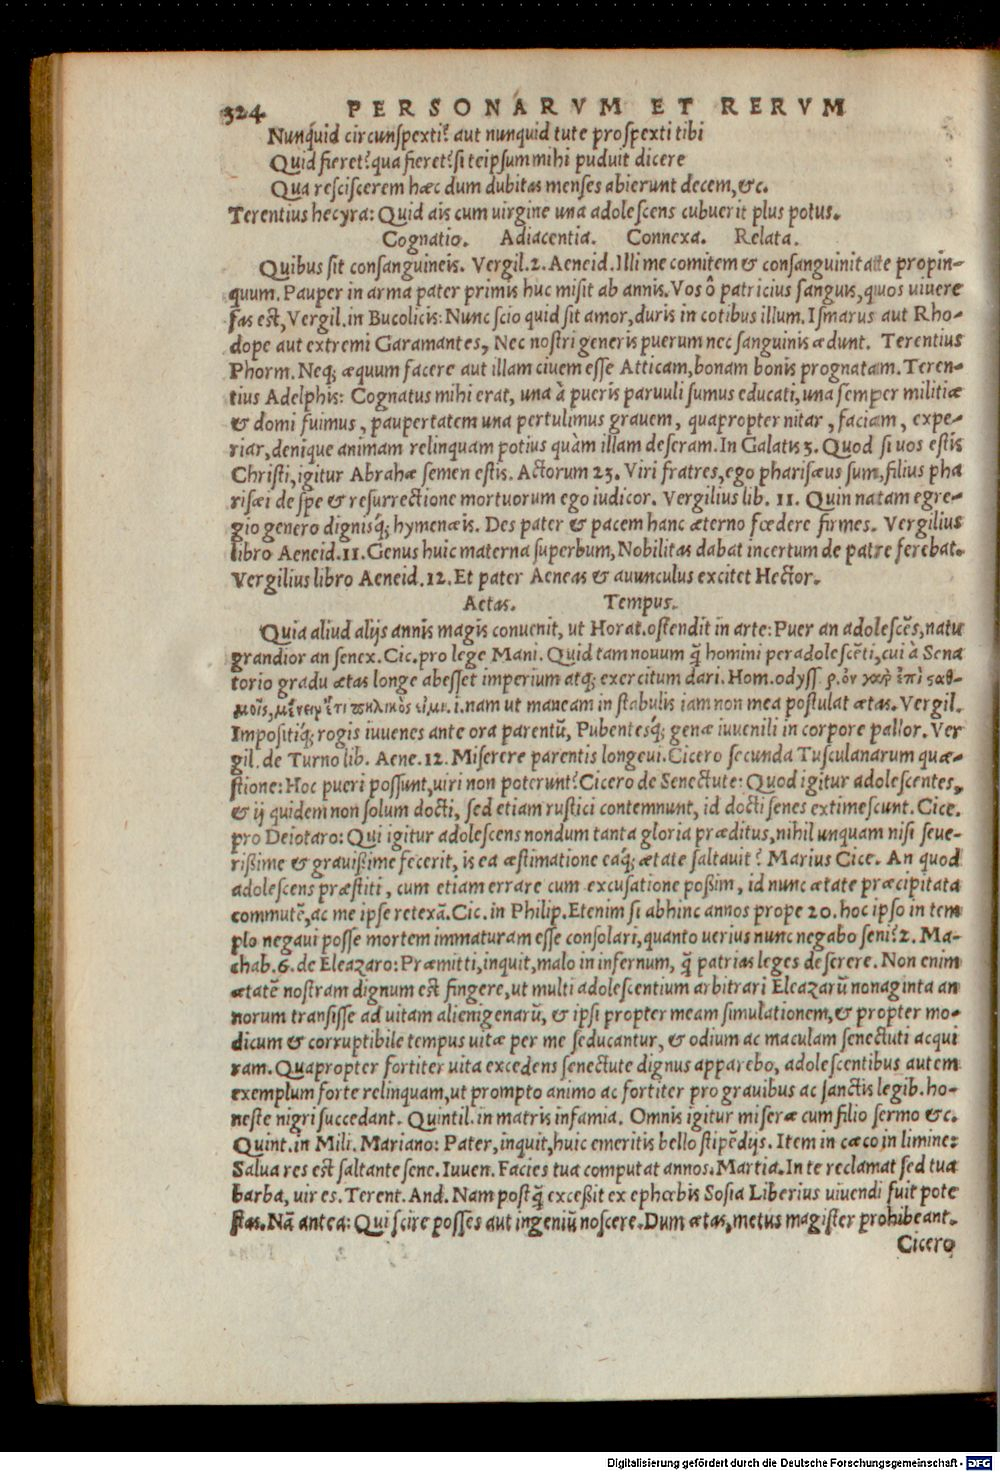 324 PERSONARVM ET RERVM
Nunquid circunspexti? aut nunquid tute prospexti tibi
Quid fieret? qua fieret? si teipsum mihi puduit dicere
Qua resciscerem hæc dum dubitas menses abierunt decem, &c.
Terentius hecyra: Quid ais cum uirgine una adolescens cubuerit plus potus.
Cognatio. Adiacentia. Connexa. Relata.
Quibus sit consanguineis. Vergil. 2. Aeneid. Illi me comitem & consanguinitate propin-
quum. Pauper in arma pater primis huc misit ab annis. Vos ô patricius sanguis, quos uiuere
fas est, Vergil. in Bucolicis: Nunc scio quid sit amor, duris in cotibus illum. Ismarus aut Rho-
dope aut extremi Garamantes, Nec nostri generis puerum nec sanguinis ædunt. Terentius
Phorm. Neq; æquum facere aut illam ciuem esse Atticam, bonam bonis prognatam. Teren-
tius Adelphis: Cognatus mihi erat, una à pueris paruuli sumus educati, una semper militiæ
& domi fuimus, paupertatem una pertulimus grauem, quapropter nitar, faciam, expe-
riar, denique animam relinquam potius quàm illam deseram. In Galatis 3. Quod si uos estis
Christi, igitur Abrahæ semen estis. Actorum 23. Viri fratres, ego pharisæus sum, filius pha
risæi de spe & resurrectione mortuorum ego iudicor. Vergilius lib. 11. Quin natam egre-
gio genero dignisq; hymenæis. Des pater & pacem hanc æterno fœdere firmes. Vergilius
libro Aeneid. 11. Genus huic materna superbum, Nobilitas dabat incertum de patre ferebat.
Vergilius libro Aeneid. 12. Et pater Aeneas & auunculus excitet Hector.
Aetas. Tempus.
Quia aliud alijs annis magis conuenit, ut Horat. ostendit in arte: Puer an adolescẽs, natu
grandior an senex. Cic. pro lege Mani. Quid tam nouum q̃ homini peradolescẽti, cui à Sena
torio gradu ætas longe abesset imperium atq; exercitum dari. Hom. odyss. ρ. ὀν γαρ ἐπὶ ςαθ-
μοῖς, μένειν ἔτι τηλικὸς εἰμι. i. nam ut maneam in stabulis iam non mea postulat ætas. Vergil.
Impositiq́; rogis iuuenes ante ora parentũ, Pubentesq́; genæ iuuenili in corpore pallor. Ver
gil. de Turno lib. Aene. 12. Miserere parentis longeui. Cicero secunda Tusculanarum quæ-
stione: Hoc pueri possunt, uiri non poterunt? Cicero de Senectute: Quod igitur adolescentes,
& ij quidem non solum docti, sed etiam rustici contemnunt, id docti senes extimescunt. Cice.
pro Deiotaro: Qui igitur adolescens nondum tanta gloria præditus, nihil unquam nisi seue-
rißime & grauißime fecerit, is ea æstimatione eaq́; ætate saltauit? Marius Cice. An quod
adolescens præstiti, cum etiam errare cum excusatione poßim, id nunc ætate præcipitata
commutẽ, ac me ipse retexã. Cic. in Philip. Etenim si abhinc annos prope 20. hoc ipso in tem
plo negaui posse mortem immaturam esse consolari, quanto uerius nunc negabo seni? 2. Ma-
chab. 6. de Eleazaro: Præmitti, inquit, malo in infernum, q̃ patrias leges deserere. Non enim
ætatẽ nostram dignum est fingere, ut multi adolescentium arbitrari Eleazarũ nonaginta an
norum transisse ad uitam alienigenarũ, & ipsi propter meam simulationem, & propter mo-
dicum & corruptibile tempus uitæ per me seducantur, & odium ac maculam senectuti acqui
ram. Quapropter fortiter uita excedens senectute dignus apparebo, adolescentibus autem
exemplum forte relinquam, ut prompto animo ac fortiter pro grauibus ac sanctis legib. ho-
neste nigri succedant. Quintil. in matris infamia. Omnis igitur miseræ cum filio sermo &c.
Quint. in Mili. Mariano: Pater, inquit, huic emeritis bello stipẽdijs. Item in cæco in limine:
Salua res est saltante sene. Iuuen. Facies tua computat annos. Martia. In te reclamat sed tua
barba, uir es. Terent. And. Nam postq̃ exceßit ex ephœbis Sosia Liberius uiuendi fuit pote
stas. Nã antea: Qui scire posses aut ingeniũ noscere. Dum ætas, metus magister prohibeant.
Cicero
Digitalisierung gefördert durch die Deutsche Forschungsgemeinschaft - DFG